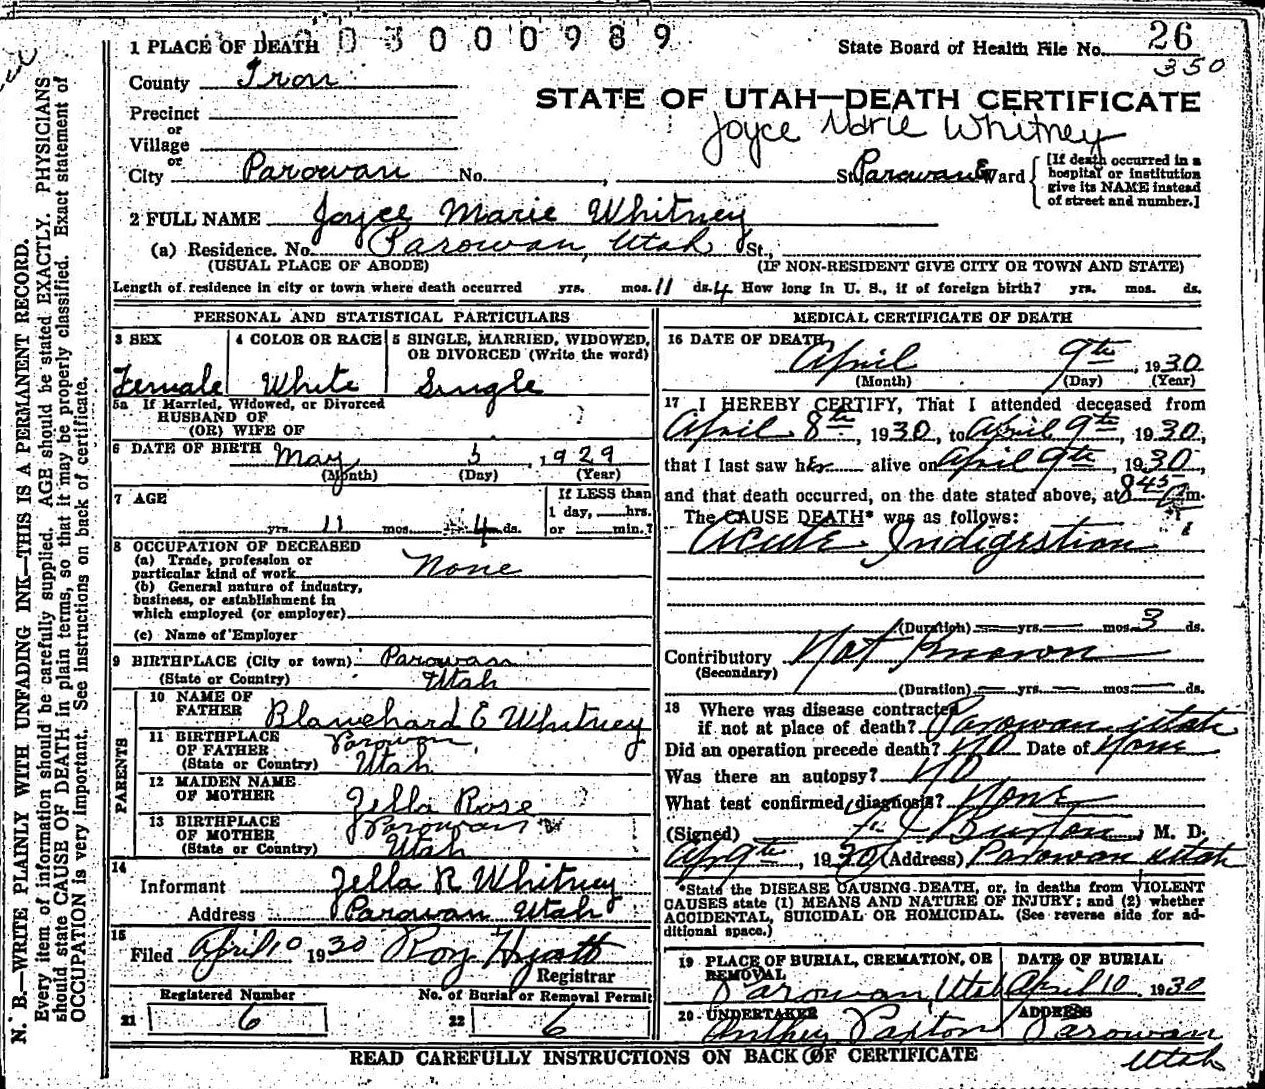 1 PLACE OF DEATH 0 3 0 0 0 9 8 9
State Board of Health File No. 26
350
County Iron
STATE OF UTAH—DEATH CERTIFICATE
Joyce Marie Whitney
Precinct
or
Village
or
City Parowan No. , St. Parowan Ward
[If death occurred in a hospital or institution give its NAME instead of street and number.]
2 FULL NAME Joyce Marie Whitney
(a) Residence. No. Parowan, Utah St.,
(USUAL PLACE OF ABODE) (IF NON-RESIDENT GIVE CITY OR TOWN AND STATE)
Length of residence in city or town where death occurred yrs. mos. 11 ds. 4 How long in U. S., if of foreign birth? yrs. mos. ds.
PERSONAL AND STATISTICAL PARTICULARS
3 SEX 4 COLOR OR RACE 5 SINGLE, MARRIED, WIDOWED,
OR DIVORCED (Write the word)
Female White Single
5a If Married, Widowed, or Divorced
HUSBAND OF
(OR) WIFE OF
6 DATE OF BIRTH May 5, 1929
(Month) (Day) (Year)
7 AGE
yrs. 11 mos. 4 ds.
If LESS than
1 day, hrs.
or min.?
8 OCCUPATION OF DECEASED
(a) Trade, profession or
particular kind of work None
(b) General nature of industry,
business, or establishment in
which employed (or employer)
(c) Name of Employer
9 BIRTHPLACE (City or town) Parowan
(State or Country) Utah
PARENTS
10 NAME OF
FATHER Blanchard E Whitney
11 BIRTHPLACE
OF FATHER Parowan,
(State or Country) Utah
12 MAIDEN NAME
OF MOTHER Zella Rose
13 BIRTHPLACE
OF MOTHER Parowan
(State or Country) Utah
14
Informant Zella R Whitney
Address Parowan Utah
15
Filed April 10 1930 Roy Hyatt
Registrar
Registered Number No. of Burial or Removal Permit
21 6 22 6
MEDICAL CERTIFICATE OF DEATH
16 DATE OF DEATH
April 9th, 1930
(Month) (Day) (Year)
17 I HEREBY CERTIFY, That I attended deceased from
April 8th, 1930, to April 9th, 1930,
that I last saw her alive on April 9th, 1930,
and that death occurred, on the date stated above, at 845 m.
The CAUSE DEATH* was as follows:
Acute Indigestion
(Duration) yrs. mos. 3 ds.
Contributory Not Known
(Secondary)
(Duration) yrs. mos. ds.
18 Where was disease contracted
if not at place of death? Parowan Utah
Did an operation precede death? NO Date of None
Was there an autopsy? NO
What test confirmed diagnosis? None
(Signed) Burton, M. D.
Apr 9th, 1930 (Address) Parowan Utah
*State the DISEASE CAUSING DEATH, or, in deaths from VIOLENT
CAUSES state (1) MEANS AND NATURE OF INJURY; and (2) whether
ACCIDENTAL, SUICIDAL OR HOMICIDAL. (See reverse side for ad-
ditional space.)
19 PLACE OF BURIAL, CREMATION, OR REMOVAL DATE OF BURIAL
Parowan, Utah April 10 1930
20 UNDERTAKER ADDRESS
Paxton Parowan
Utah
READ CAREFULLY INSTRUCTIONS ON BACK OF CERTIFICATE
N. B.—WRITE PLAINLY WITH UNFADING INK—THIS IS A PERMANENT RECORD.
Every item of information should be carefully supplied. AGE should be stated EXACTLY. PHYSICIANS
should state CAUSE OF DEATH in plain terms, so that it may be properly classified. Exact statement of
OCCUPATION is very important. See instructions on back of certificate.